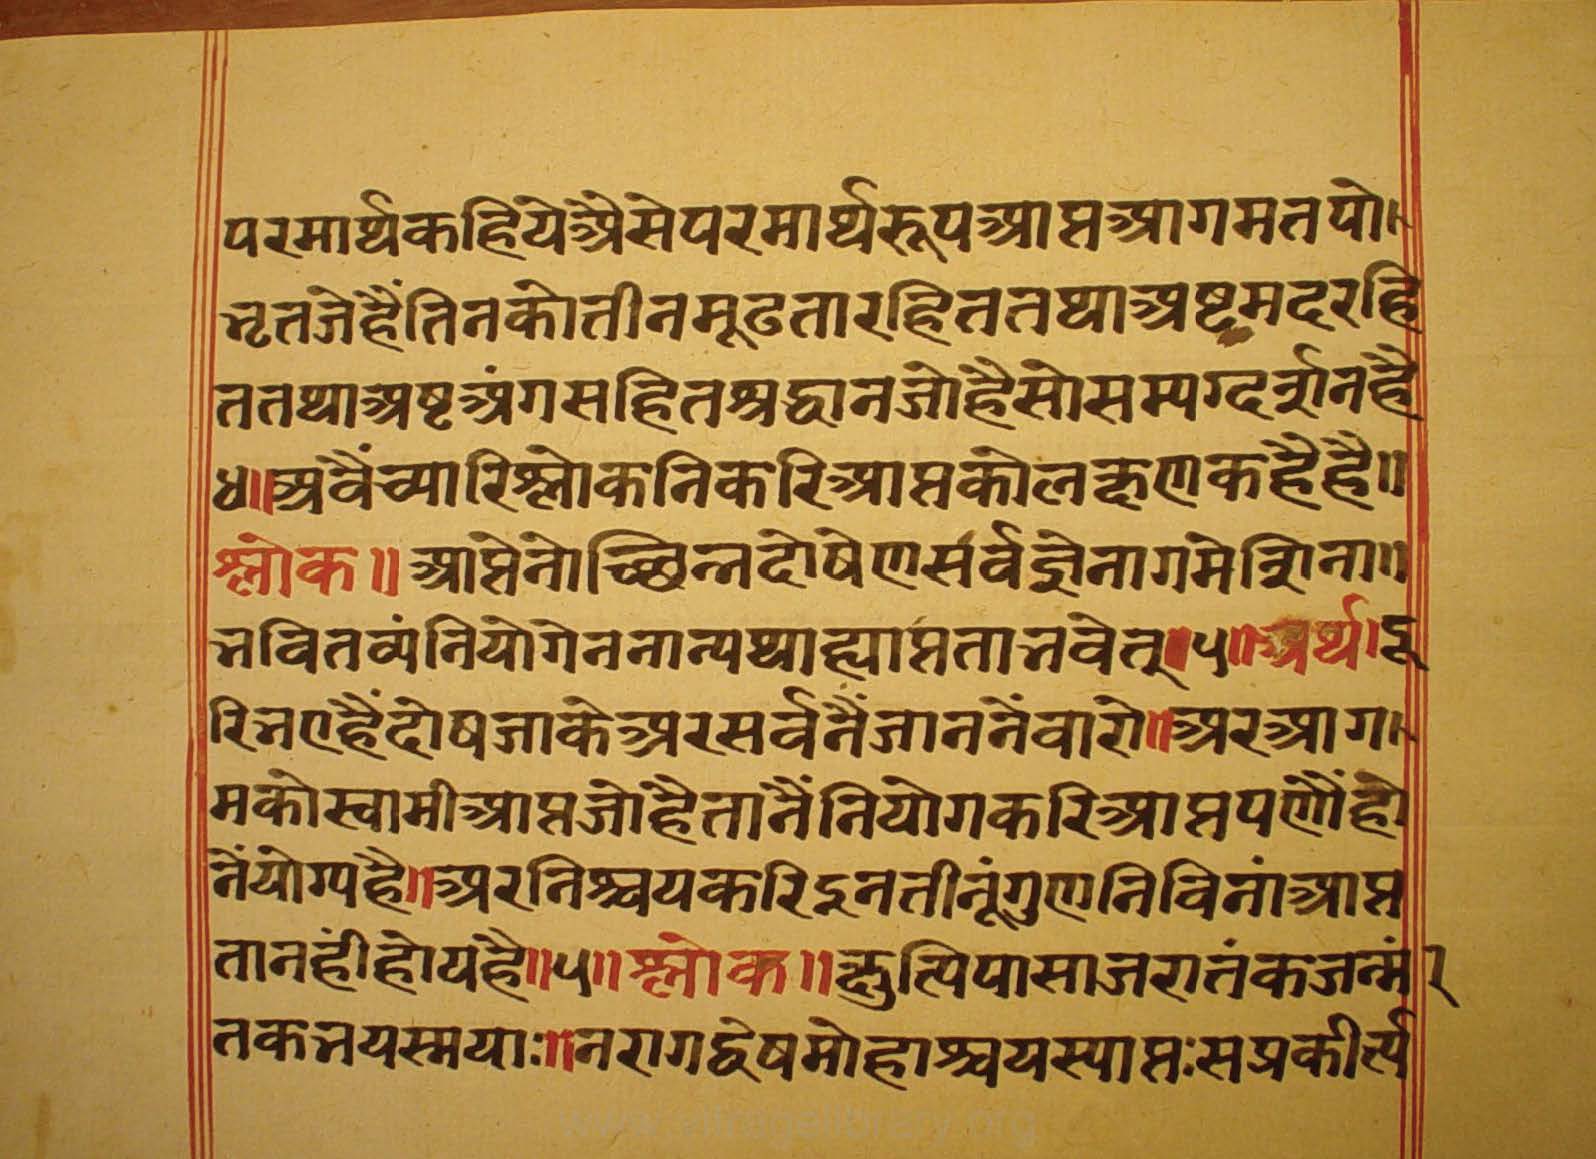 परमार्थकहियेअैसेपरमार्थरूपआप्तआगमतपो।
भृतजेहैंतिनकोतीनमूढतारहिततथाअष्टमदरहि
ततथाअष्टअंगसहितश्रद्धानजोहैसोसम्यग्दर्शनहै
४॥अवैंच्यारिश्लोकनिकरिआप्तकोलक्षणकहैहै॥
श्लोक॥आप्तेनोच्छिन्नदोषेणसर्वज्ञेनागमेशिना॥
भवितव्यंनियोगेननान्यथाह्याप्तताभवेत्॥५॥अर्थ।दू
रिभएहैंदोषजाकेअरसर्वनैंजाननेंवारो॥अरआग
मकोस्वामीआप्तजोहैतानैंनियोगकरिआप्तपणौंहो
नेंयोग्यहै॥अरनिश्चयकरिइनतीनूंगुणनिविनांआप्त
तानहींहोयहै॥५॥श्लोक॥क्षुत्पिपासाजरातंकजन्मां
तकभयस्मयाः॥नरागद्वेषमोहाश्चयस्याप्तःसप्रकीर्त्य
www.jaingelibrary.org